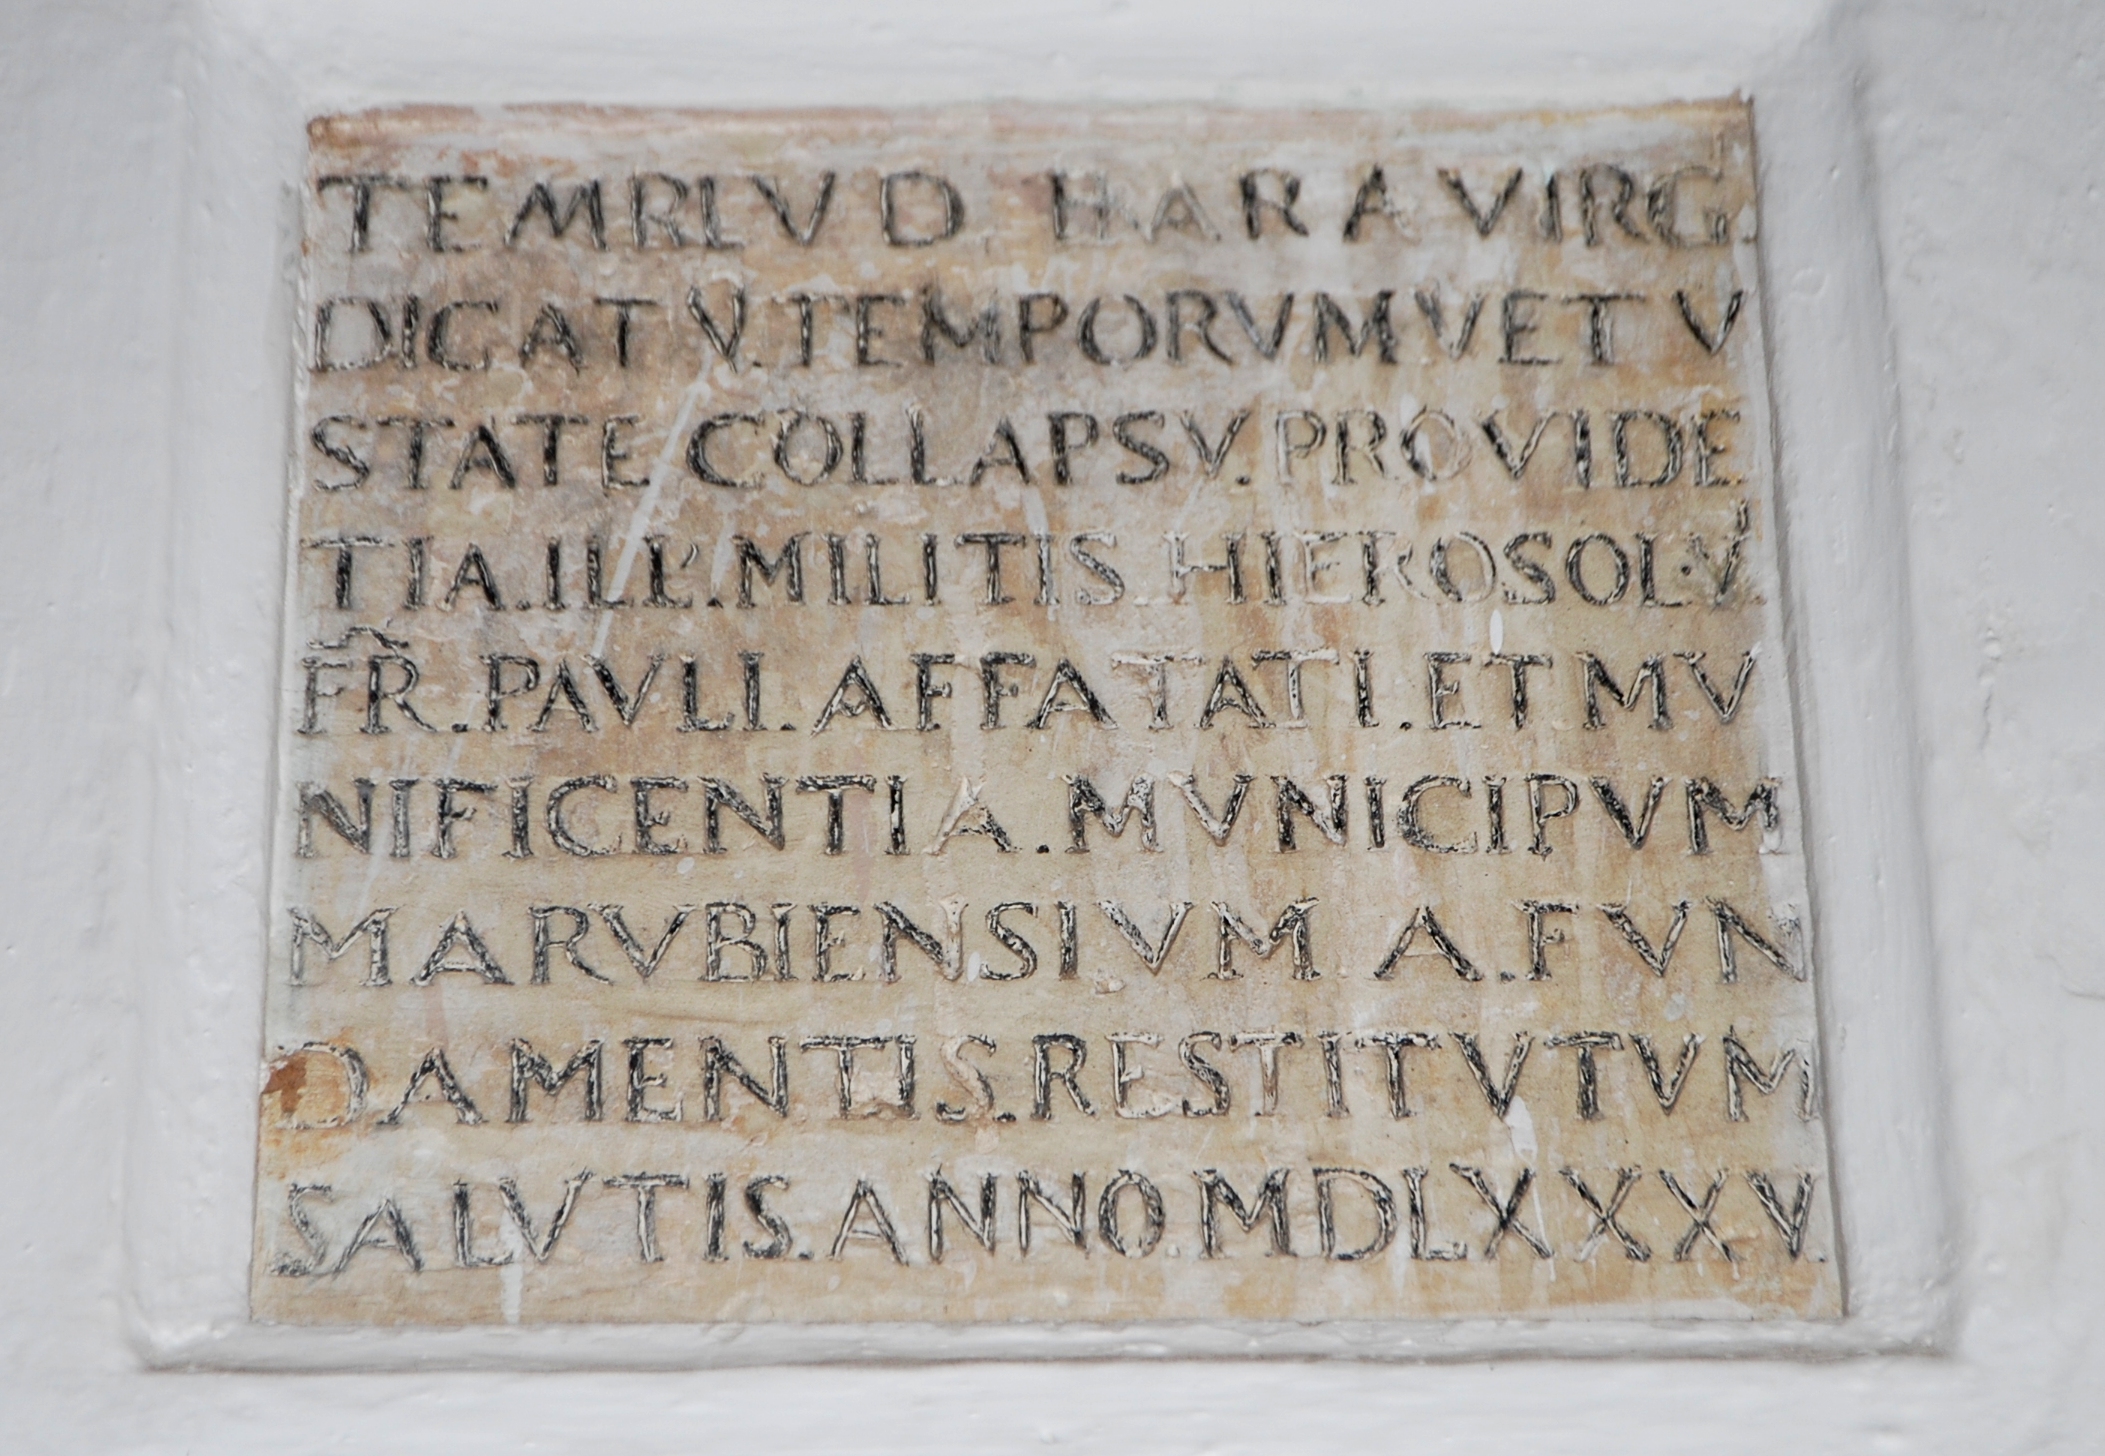 TEMRLVD BARAVIRG.
DICATV.TEMPORVMVETV
STATE COLLAPSV.PROVIDE
TIA.ILL'.MILITIS.HIEROSOL.V.
FR.PAVLI.AFFATATI.ET MV
NIFICENTIA.MVNICIPVM
MARVBIENSIVM A.FVN
DAMENTIS.RESTITVTVM
SALVTIS.ANNO.MDLXXXV.